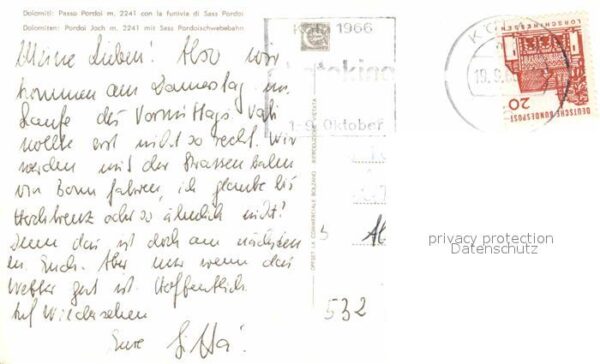 Dolomiti: Passo Pordoi m. 2241 con la funivia di Sass Pordoi
Dolomiten: Pordoi Joch m. 2241 mit Sass Pordoischwebebahn
Meine Lieben! Also wir
kommen am Donnerstag im
Laufe des Vormittags. Vati
wollte erst nicht so recht. Wir
werden mit der Strassenbahn
von Bonn fahren, ich glaube bis
Hochkreuz oder so ähnlich nicht!
Denn das ist doch am nächsten
zu Euch. Aber nur wenn das
Wetter gut ist. Hoffentlich
Auf Wiedersehen
Eure
OFFSET LA COMMERCIALE BOLZANO RIPRODUZIONE VIETATA
1966
1-9. Oktober
DEUTSCHE BUNDESPOST
20
532
privacy protection
Datenschutz